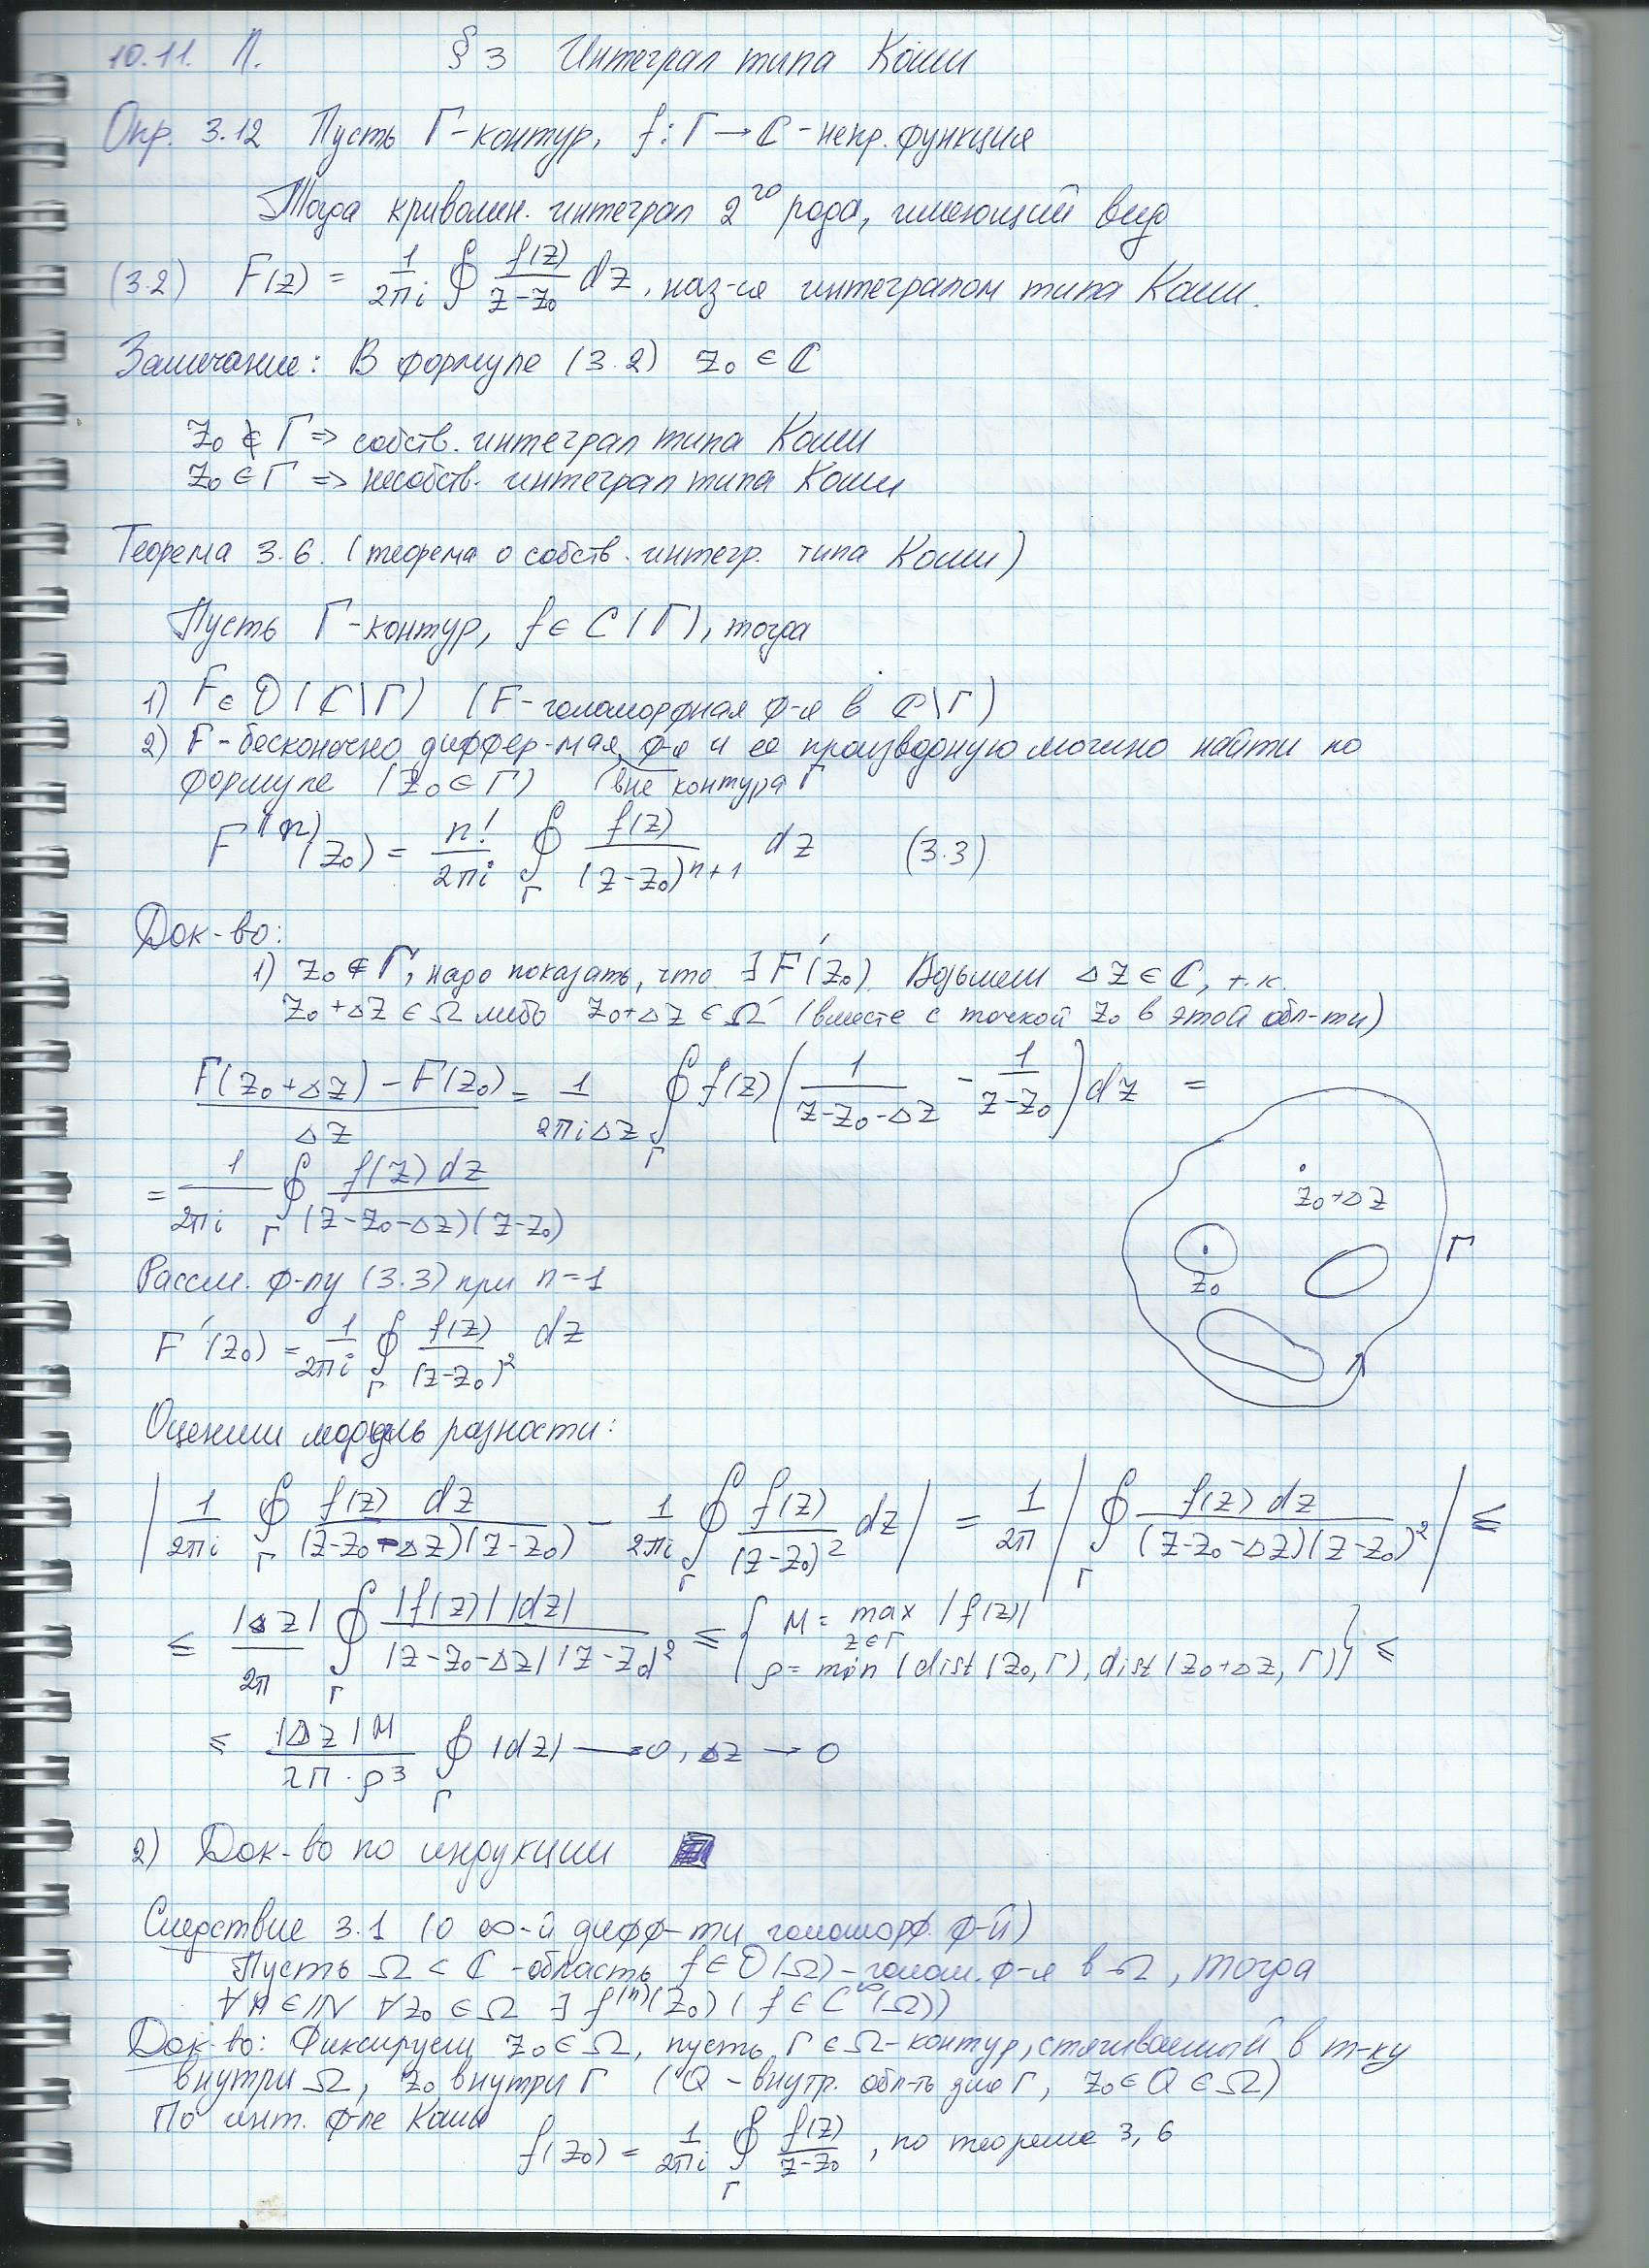 10.11. Л. § 3 Интеграл типа Коши
Опр. 3.12 Пусть Γ-контур, f: Γ → ℂ - непр. функция
Тогда криволин. интеграл 2го рода, имеющий вид
(3.2) F(z) = 1/2πi ∮ f(z)/(z-z₀) dz, наз-ся интегралом типа Коши.
Замечание: В формуле (3.2) z₀ ∈ ℂ
z₀ ∉ Γ ⇒ собств. интеграл типа Коши
z₀ ∈ Γ ⇒ несобств. интеграл типа Коши
Теорема 3.6. (теорема о собств. интегр. типа Коши)
Пусть Γ-контур, f ∈ C(Γ), тогда
1) F ∈ O(ℂ\Γ) (F - голоморфная ф-я в ℂ\Γ)
2) F - бесконечно диффер-мая ф-я и её производную можно найти по
формуле (z₀ ∈ Γ) (вне контура Γ
F⁽ⁿ⁾(z₀) = n!/2πi ∮_Γ f(z)/(z-z₀)ⁿ⁺¹ dz (3.3)
Док-во:
1) z₀ ∉ Γ, надо показать, что ∃ F′(z₀). Возьмём Δz ∈ ℂ, т.к.
z₀+Δz ∈ Ω либо z₀+Δz ∈ Ω′ (вместе с точкой z₀ в этой обл-ти)
(F(z₀+Δz) - F(z₀))/Δz = 1/2πiΔz ∮_Γ f(z) (1/(z-z₀-Δz) - 1/(z-z₀)) dz =
= 1/2πi ∮_Γ f(z)dz/((z-z₀-Δz)(z-z₀))
z₀+Δz
Γ
z₀
Рассм. ф-лу (3.3) при n=1
F′(z₀) = 1/2πi ∮_Γ f(z)/(z-z₀)² dz
Оценим модуль разности:
|1/2πi ∮_Γ f(z) dz/((z-z₀-Δz)(z-z₀)) - 1/2πi ∮_Γ f(z)/(z-z₀)² dz| = 1/2π |∮_Γ f(z) dz/((z-z₀-Δz)(z-z₀)²)| ≤
≤ |Δz|/2π ∮_Γ |f(z)||dz|/(|z-z₀-Δz||z-z₀|²) ≤ { M = max_{z∈Γ} |f(z)|
ρ = min (dist(z₀,Γ), dist(z₀+Δz, Γ)) } ≤
≤ |Δz|M/(2π·ρ³) ∮_Γ |dz| → 0, Δz → 0
2) Док-во по индукции
Следствие 3.1 (о ∞-й дифф-ти голоморф. ф-й)
Пусть Ω ⊂ ℂ - область, f ∈ O(Ω) - голом. ф-я в Ω, тогда
∀n ∈ ℕ ∀z₀ ∈ Ω ∃ f⁽ⁿ⁾(z₀) (f ∈ C^∞(Ω))
Док-во: Фиксируем z₀ ∈ Ω, пусть Γ ∈ Ω - контур, стягиваемый в т-ку
внутри Ω, z₀ внутри Γ (Q - внутр. обл-ть для Γ, z₀ ∈ Q ∈ Ω)
По инт. ф-ле Коши
f(z₀) = 1/2πi ∮_Γ f(z)/(z-z₀), по теореме 3,6